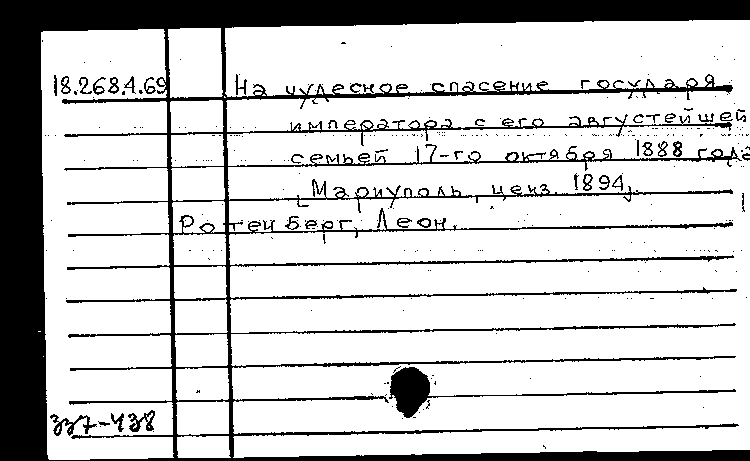 18.268.4.69 На чудесное спасение государя
императора с его августейшей
семьей 17-го октября 1888 года
[Мариуполь, ценз. 1894].
Ротенберг, Леон.
337-438